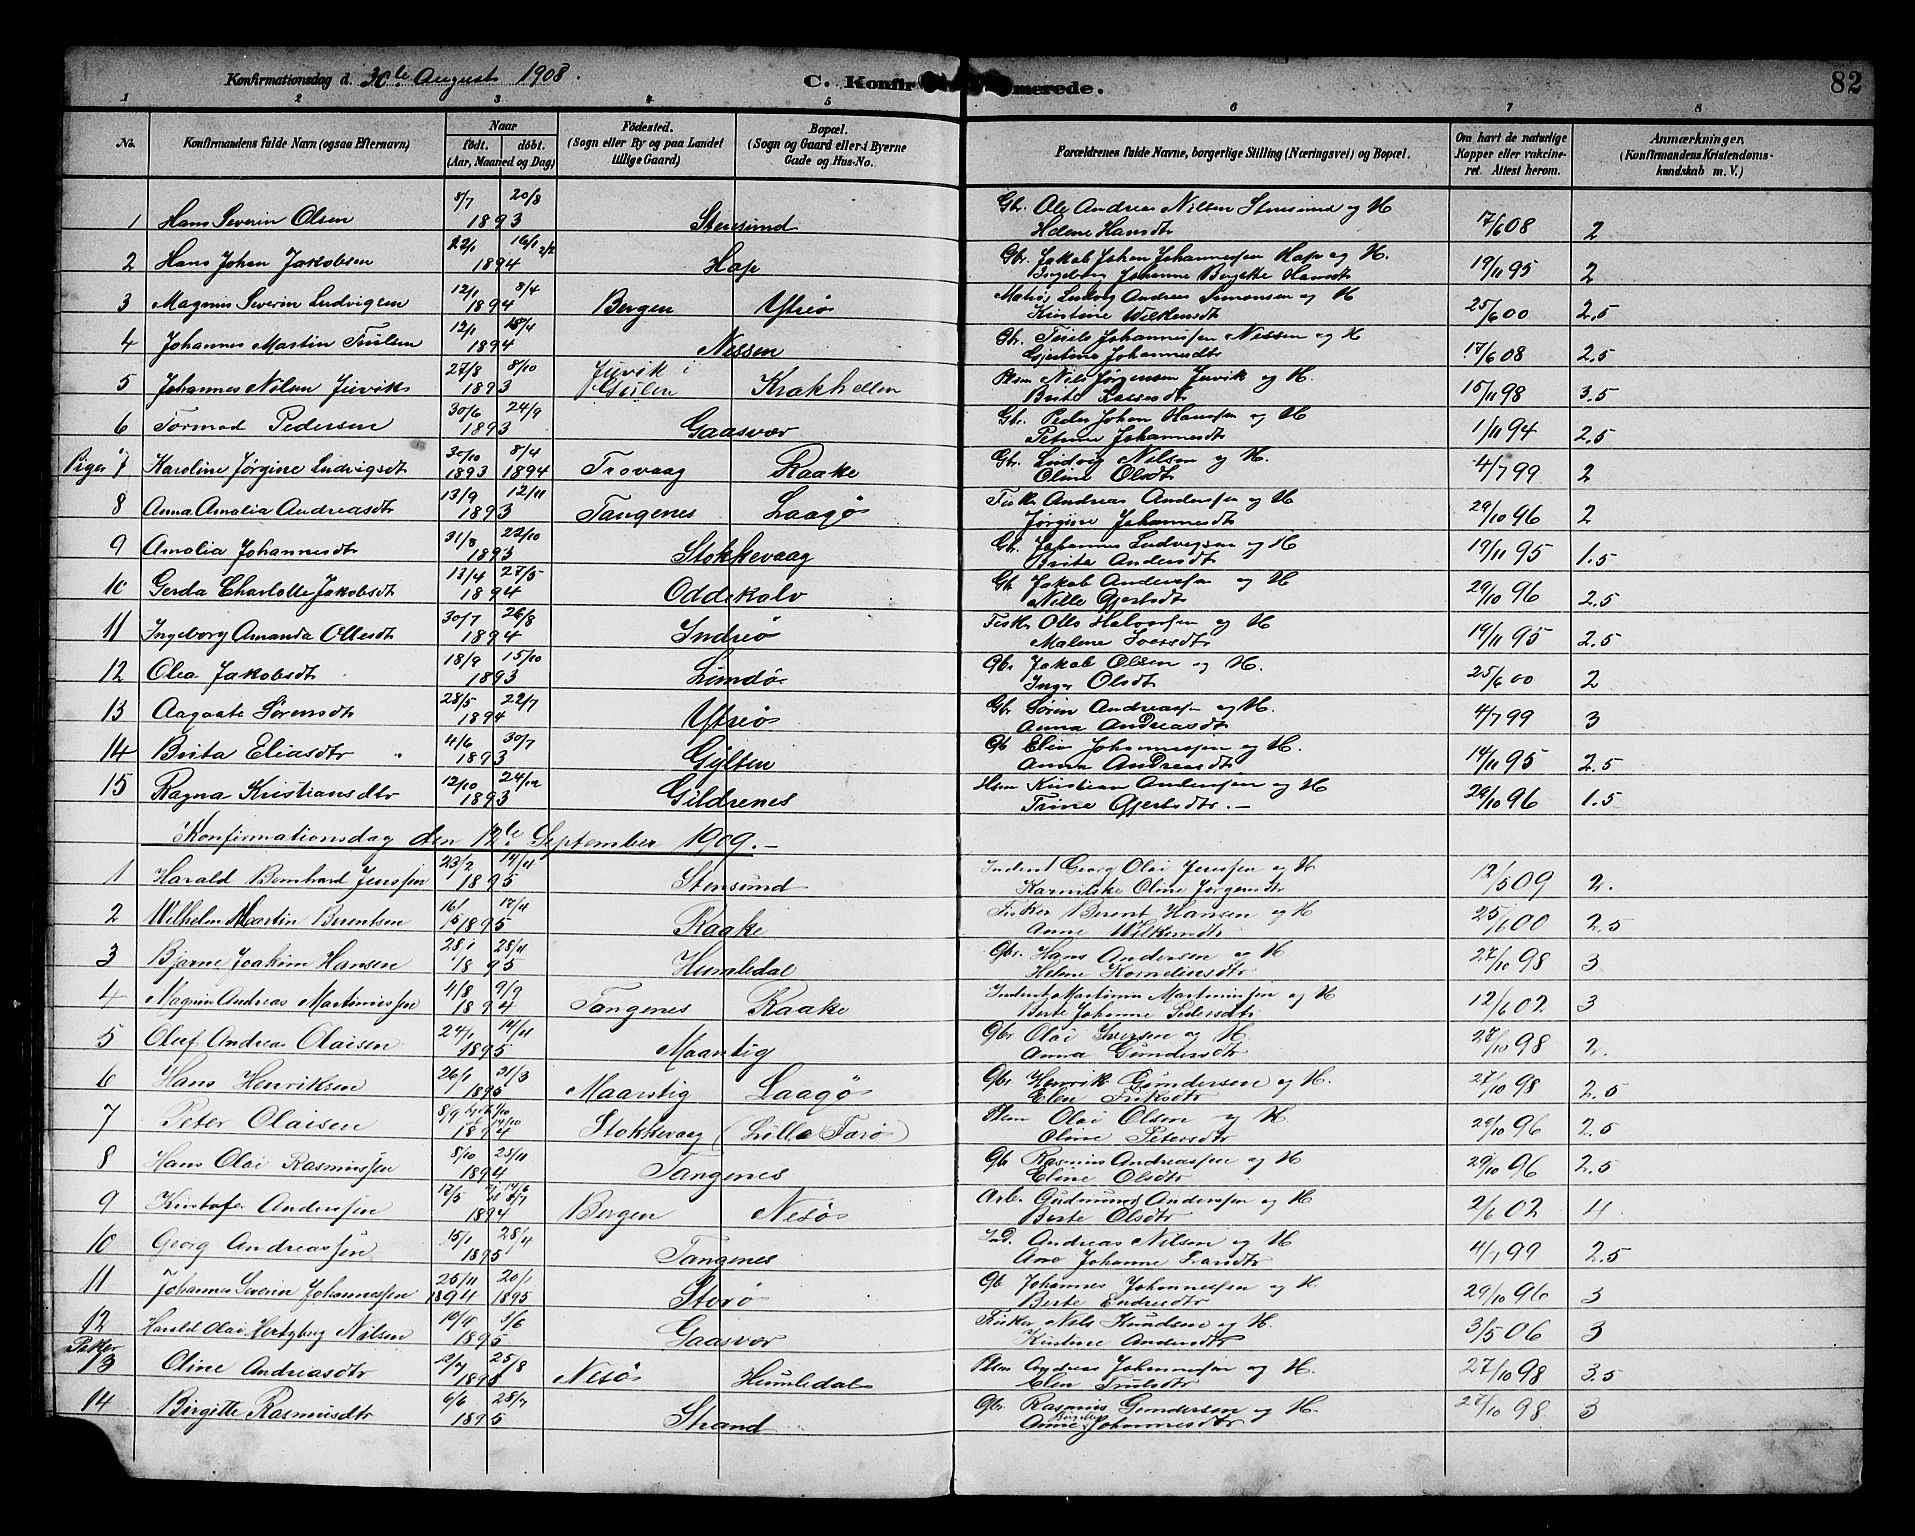 Konfirmationsdag d. 30te August 1908. C. Konfirmerede. 82
1 2 3 4 5 6 7 8
No. Konfirmandens fulde Navn (ogsaa Efternavn) Naar født. døbt. (Aar, Maaned og Dag) Fødested. (Sogn eller By og paa Landet tillige Gaard) Bopæl. (Sogn og Gaard eller i Byerne Gade og Hus-No. Forældrenes fulde Navne, borgerlige Stilling (Næringsvei) og Bopæl. Om havt de naturlige Kopper eller vaccineret. Attest herom. Anmærkninger. (Konfirmandens Kristendomskundskab m. V.)
1 Hans Severin Olsen 8/7 20/8 1893 Stensund Gbr. Ole Andreas Nilsen Stensund og H Helene Hansdtr 17/6 08 2
2 Hans Johan Jakobsen 22/1 1894 Hop Gbr. Jakob Johan Johannessen Hop og H. Ingeborg Johanne Birgitte Hansdt 19/11 95 2
3 Magnus Severin Ludvigsen 12/1 8/4 1894 Bergen Ytreø Matros Ludvig Andreas Simonsen og H Kristine Wilkensdt 25/6 00 2.5
4 Johannes Martin Trulsen 12/1 1894 Nessen Gbr. Truls Johannessen Nessen og H Gjertine Johannesdtr 17/6 08 2.5
5 Johannes Nilsen Juvik 27/8 8/10 1893 Juvik i Gulen Krakhellen Plsm Nils Jørgensen Juvik og H. Brite Lassesdt 15/11 98 3.5
6 Tormod Pedersen 30/6 24/9 1893 Gaasvær Gbr. Peder Johan Hansen og H Petrine Johannesdt 1/11 94 2.5
Piger 7 Karoline Jørgine Ludvigsdt 30/10 1893 8/4 1894 Trovaag Raake Gbr. Ludvig Nilsen og H. Oline Olsdt 4/7 99 2
8 Anna Amalia Andreasdtr 13/9 12/11 1893 Tangenes Laagø Fisk. Andreas Andersen og H Jørgine Johannesdtr 29/10 96 2
9 Amalia Johannesdtr 31/8 22/10 1893 Stokkevaag Gbr. Johannes Ludvigsen og H Brita Andersdt 19/11 95 1.5
10 Gerda Charlotte Jakobsdt 13/4 27/5 1894 Oddekalv Gb Jakob Andersen og H Nille Gjertsdt 29/10 96 2.5
11 Ingeborg Amanda Ottesdt 30/7 26/8 1894 Indreø Fisk. Otto Halvorsen og H Malene Iversdt 19/11 95 2.5
12 Olea Jakobsdt 18/9 15/10 1893 Lundø Gbr Jakob Olsen og H. Inger Olsdt 25/6 00 2
13 Aagaate Sørensdt 28/5 22/7 1894 Ytreø Gbr Søren Andreassen og H. Anna Andreasdt 4/7 99 3
14 Brita Eliasdtr 4/6 30/7 1893 Gylten Gb Elias Johannessen og H. Anna Andreasdt 14/11 95 2.5
15 Ragna Kristiansdtr 12/10 24/12 1893 Gildrenes Hsm Kristian Andersen og H Trine Gjertsdtr. 29/10 96 1.5
Konfirmationsdag den 12te September 1909.
1 Harald Bernhard Jenssen 23/2 14/4 1895 Stensund Inderst Georg Olai Jenssen og H Oline Jørgensdtr 12/5 09 2.
2 Wilhelm Martin Berentsen 16/1 17/4 1895 Raake Fisker Berent Hansen og H Anne Wilkensdtr 25/6 00 2.5
3 Bjarne Joakim Hansen 28/1 28/4 1895 Humledal Gbr. Hans Andersen og H Helene Korneliusdtr 27/10 98 3
4 Magnus Andreas Martinussen 4/8 9/9 1894 Tangenes Raake Inderst Martinus Martinussen og H Berte Johanne Pedersdtr 12/6 02 3
5 Oluf Andreas Olaisen 24/1 14/4 1895 Maanstig Gbr Olai Iversen og H Anna Gundersdtr 27/10 98 2.
6 Hans Henriksen 26/1 31/3 1895 Maanstig Laagø Gbr Henrik Gundersen og H. Elen Eriksdtr 27/10 98 2.5
7 Peter Olaisen 8/9 1894 Stokkevaag (Lille Farø) Plsm Olai Olsen og H Oline Petersdtr 29/10 96 2.5
8 Hans Olai Rasmussen 8/10 25/11 1894 Tangenes Gbr Rasmus Andreassen og H Eline Olsdtr 29/10 96 2.5
9 Kristofer Anderssen 17/5 1894 Bergen Nesø Arb. Gudmund Anderssen og H Berte Olsdtr 2/6 02 4
10 Georg Andreassen 15/1 28/4 1895 Tangenes Ind. Andreas Nilsen og H Ane Johanne 4/7 99 2.5
11 Johannes Severin Johannessen 25/11 1894 20/1 1895 Storø Gb Johannes Johannessen og H Berte Endresdtr 29/10 96 3
12 Harald Olai Hertzberg Nilsen 19/4 3/6 1895 Gaasvær Fisker Nils Knudsen og H. Kristine Andersdtr 3/5 06 3
Piker
13 Oline Andreasdtr 2/7 25/8 1895 Nesø Humledal Plsm Andreas Johannessen og H. Elen Trulsdtr 27/10 98 3.5
14 Birgitte Rasmusdtr 6/6 28/7 1895 Strand Gbr. Rasmus Gundersen og H. Anne Birgitte Johannesdtr 27/10 98 3